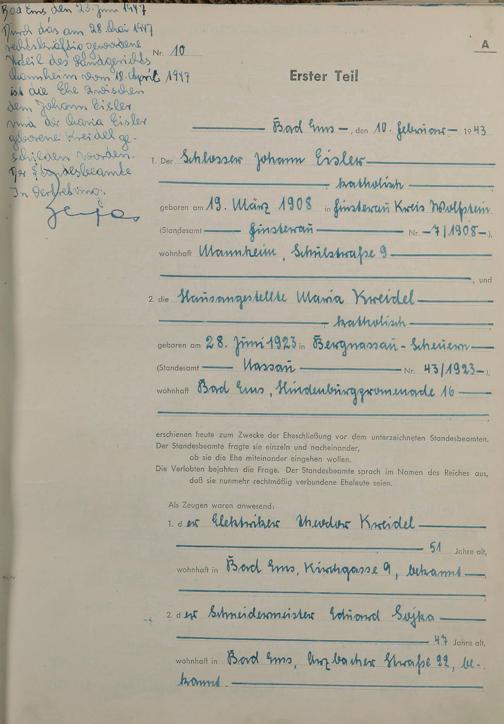 Bad Ems, den 23. Juni 1947
Durch das am 28. Mai 1947
rechtskräftig gewordene
Urteil des Landgerichts
Mannheim vom 18. April 1947
ist die Ehe zwischen
dem Johann Eisler
und der Maria Eisler
geborene Kreidel ge-
schieden worden.
Der Standesbeamte
In Vertretung:
A
Nr. 10
Erster Teil
Bad Ems, den 10. Februar 1943
1. Der Schlosser Johann Eisler
katholisch
geboren am 19. März 1908 in Finsterau Kreis Wolfstein
(Standesamt Finsterau Nr. 7/1908).
wohnhaft Mannheim, Schulstraße 9
, und
2. die Hausangestellte Maria Kreidel
katholisch
geboren am 28. Juni 1923 in Bergnassau-Scheuern
(Standesamt Nassau Nr. 43/1923).
wohnhaft Bad Ems, Hindenburgpromenade 16
erschienen heute zum Zwecke der Eheschließung vor dem unterzeichneten Standesbeamten.
Der Standesbeamte fragte sie einzeln und nacheinander,
ob sie die Ehe miteinander eingehen wollen.
Die Verlobten bejahten die Frage. Der Standesbeamte sprach im Namen des Reiches aus,
daß sie nunmehr rechtmäßig verbundene Eheleute seien.
Als Zeugen waren anwesend:
1. der Elektriker Theodor Kreidel
51 Jahre alt,
wohnhaft in Bad Ems, Kirchgasse 9, bekannt
2. der Schneidermeister Eduard Sojka
47 Jahre alt,
wohnhaft in Bad Ems, Arzbacher Straße 22, be-
kannt.